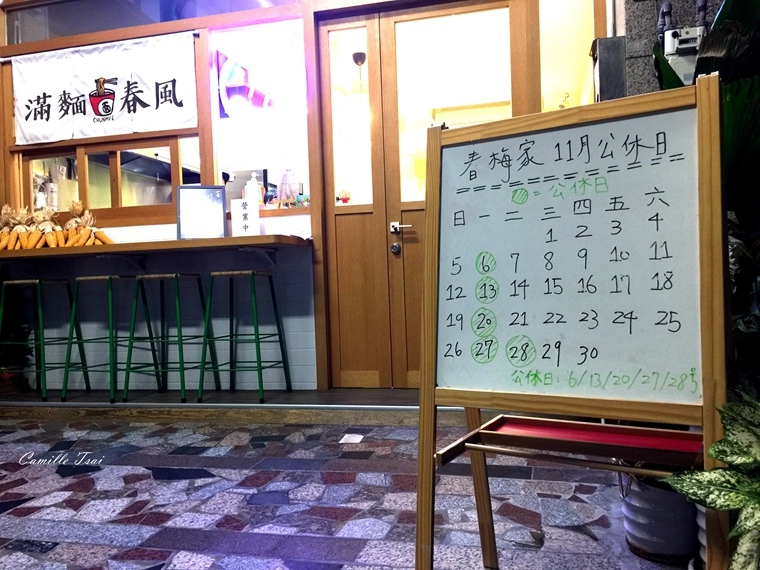 滿麵春風
CHUNMEI
營業中
春梅家 11月公休日
= 公休日
日 一 二 三 四 五 六
1 2 3 4
5 6 7 8 9 10 11
12 13 14 15 16 17 18
19 20 21 22 23 24 25
26 27 28 29 30
公休日: 6/13/20/27/28號
Camille Tsai